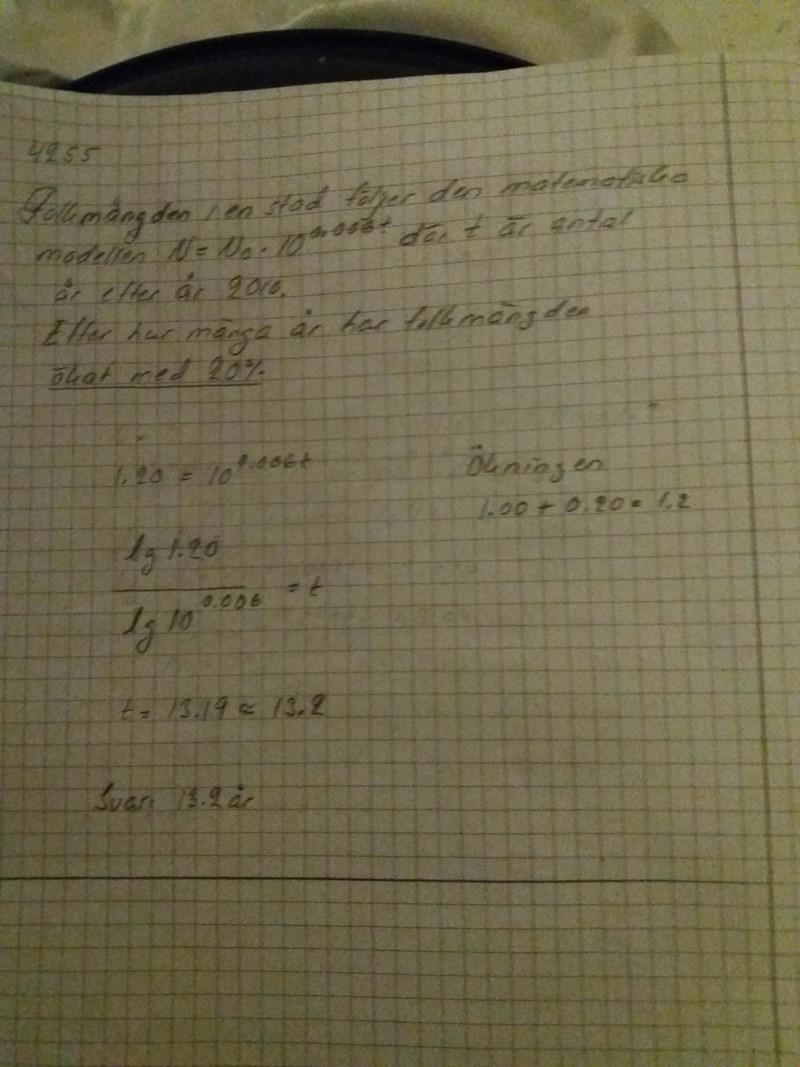 4255
Folkmängden i en stad följer den matematiska
modellen N = N₀ · 10^0.006t där t är antal
år efter år 2010.
Efter hur många år har folkmängden
ökat med 20%.
1.20 = 10^0.006t
Ökningen
1.00 + 0.20 = 1.2
lg 1.20
lg 10^0.006 = t
t = 13.19 ≈ 13.2
Svar: 13.2 år